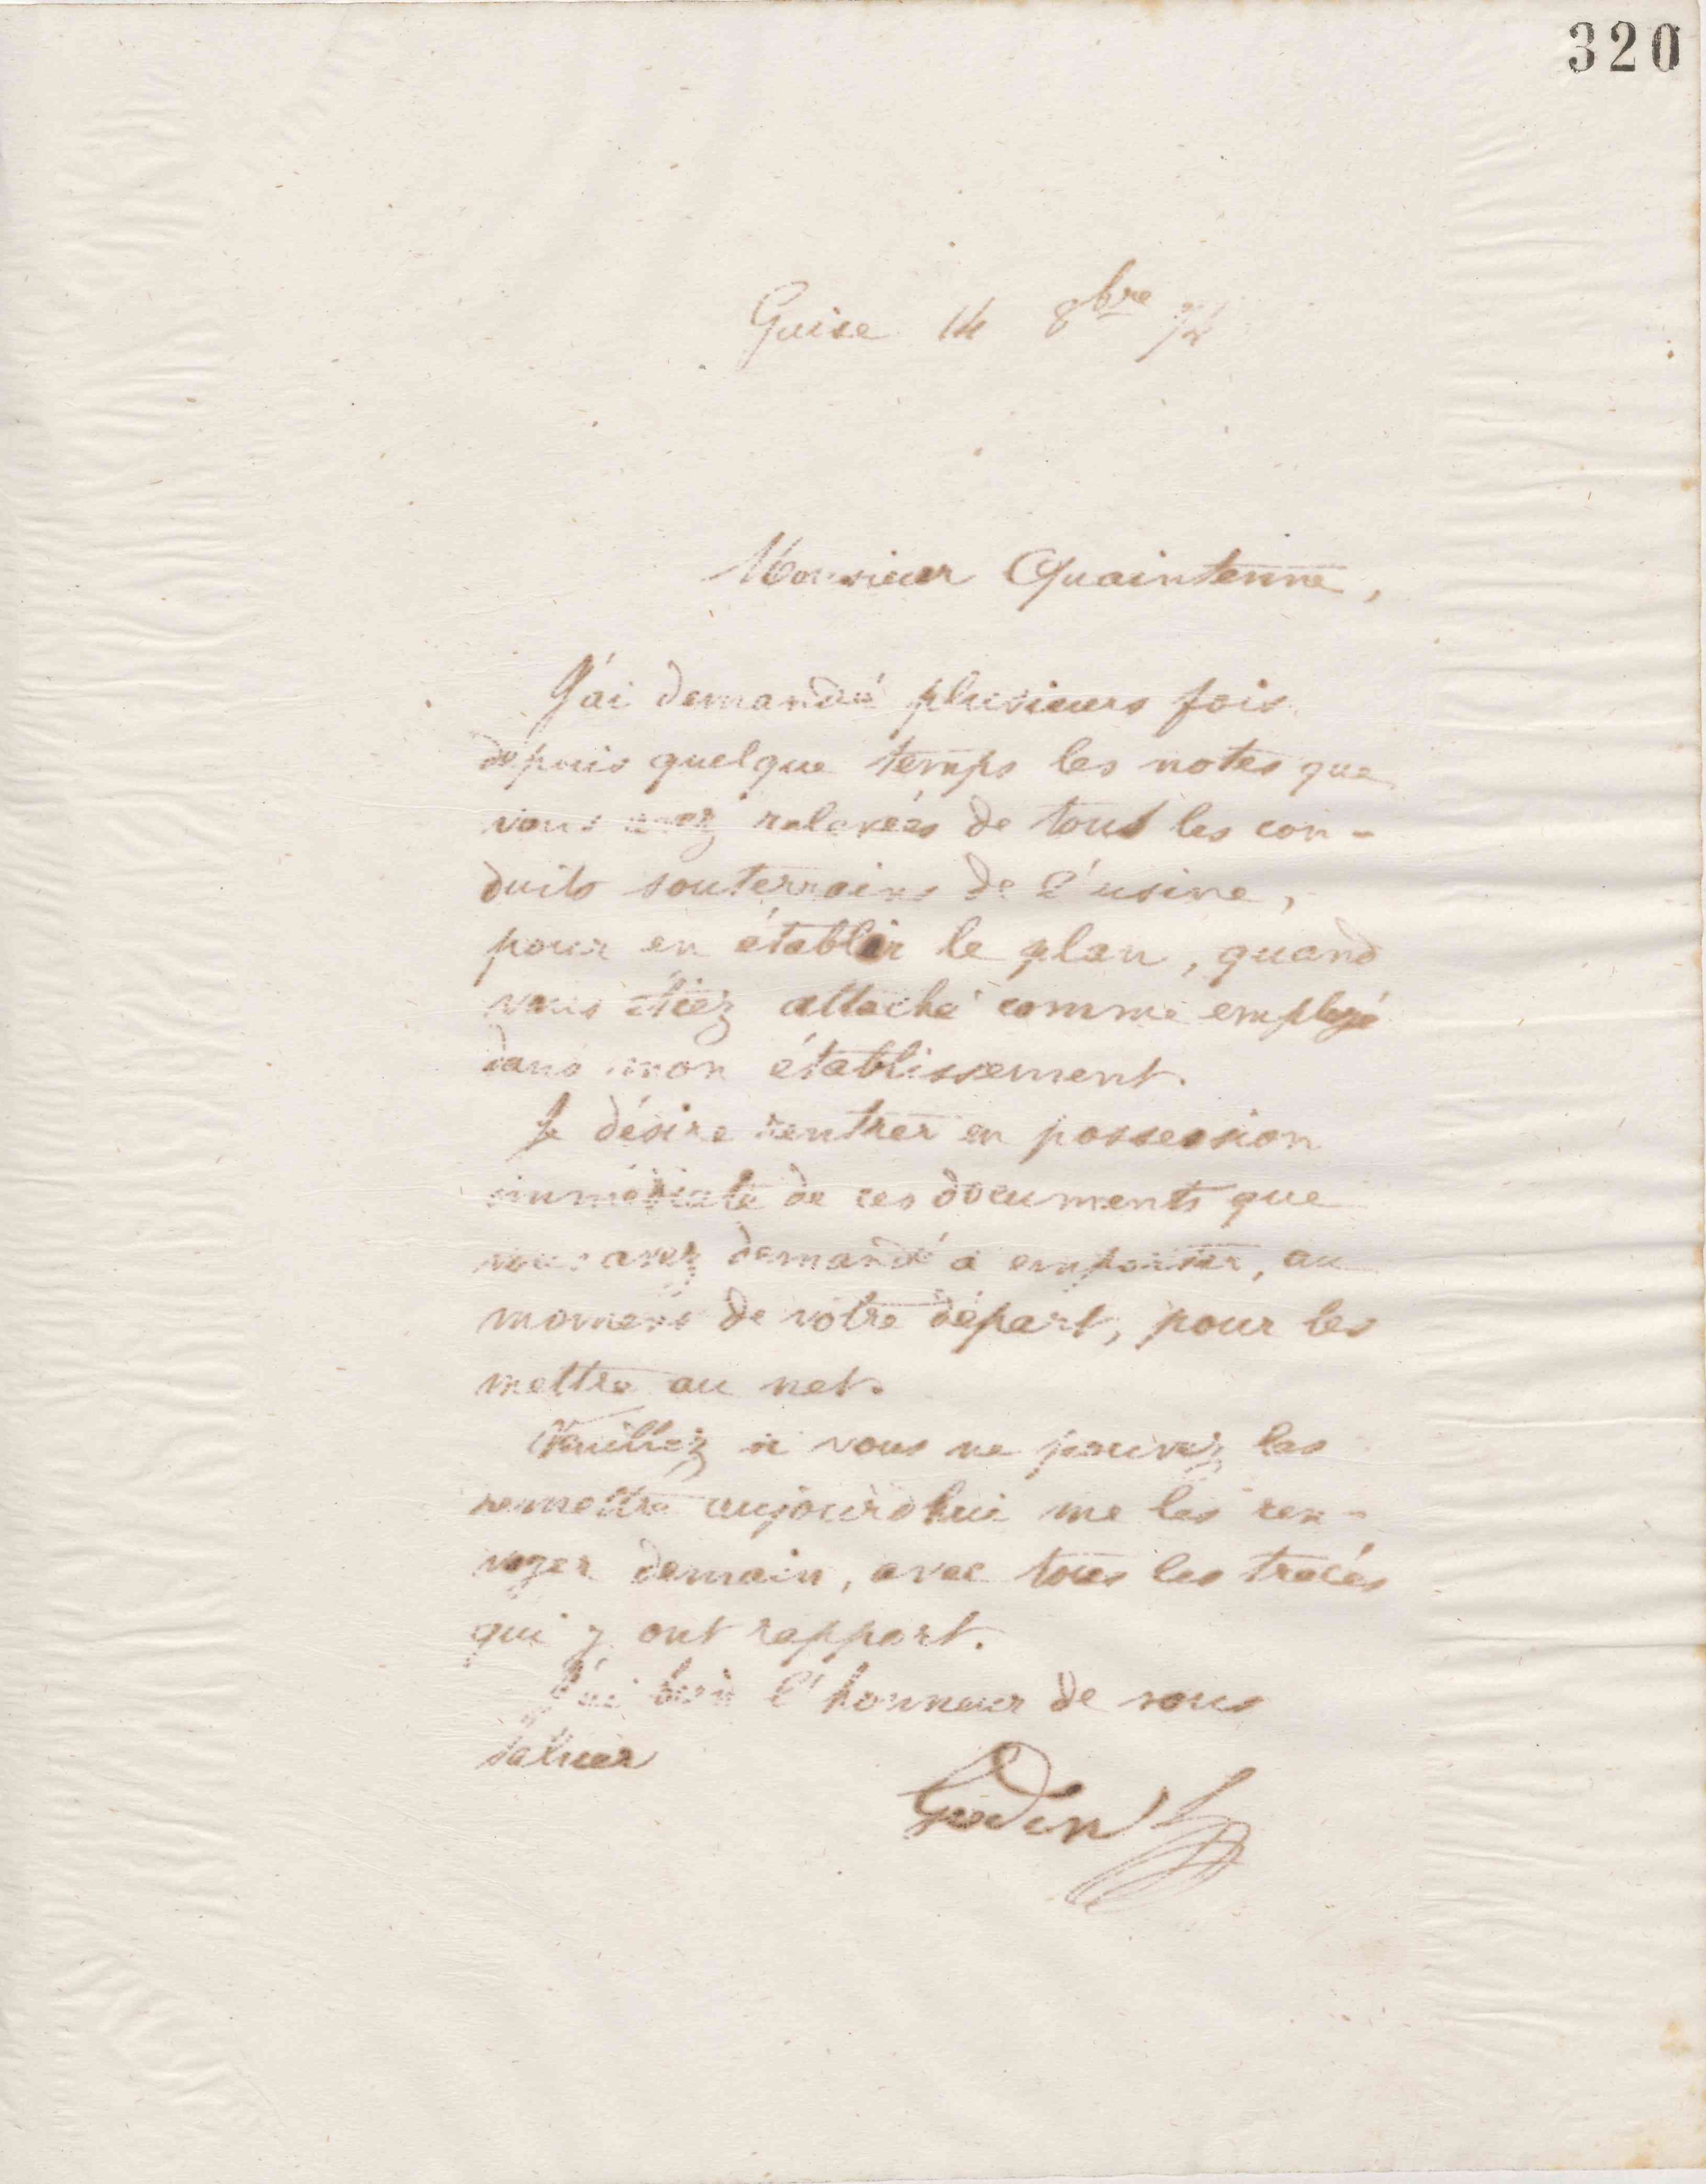 320
Guise 14 8bre
Monsieur Quaintenne,
J'ai demandé plusieurs fois
depuis quelque temps les notes que
vous avez relevées de tous les con-
duits souterrains de l'usine,
pour en établir le plan, quand
vous étiez attaché comme employé
dans mon établissement.
Je désire rentrer en possession
immédiate de ces documents que
vous avez demandé à emporter, au
moment de votre départ, pour les
mettre au net.
Veuillez si vous ne pouvez les
remettre aujourd'hui me les ren-
voyer demain, avec tous les tracés
qui y ont rapport.
J'ai bien l'honneur de vous
saluer
Godin